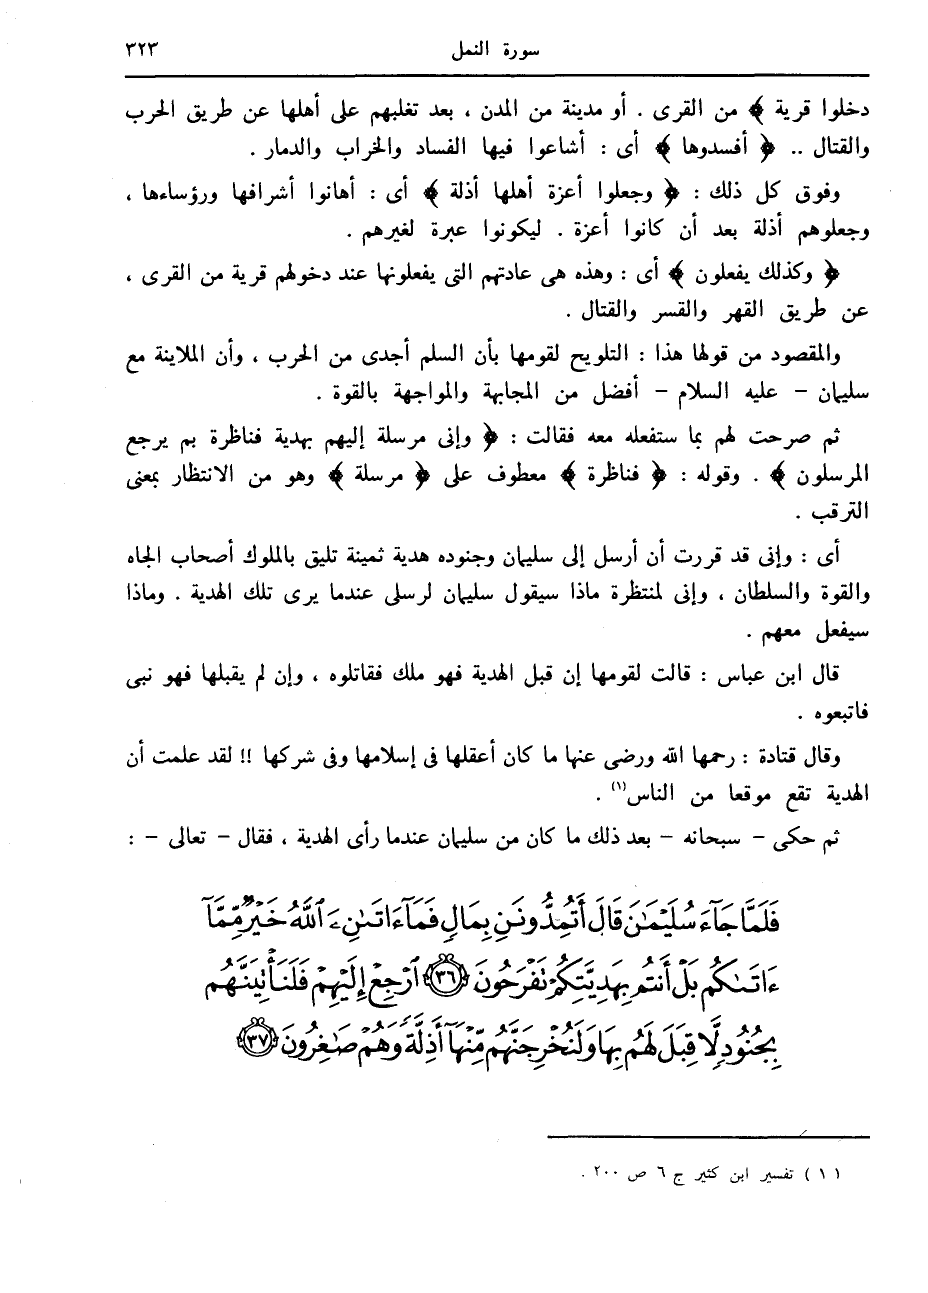 سورة النمل ٣٢٣
دخلوا قرية ﴾ من القرى . أو مدينة من المدن ، بعد تغلبهم على أهلها عن طريق الحرب
والقتال .. ﴿ أفسدوها ﴾ أى : أشاعوا فيها الفساد والخراب والدمار .
وفوق كل ذلك : ﴿ وجعلوا أعزة أهلها أذلة ﴾ أى : أهانوا أشرافها ورؤساءها ،
وجعلوهم أذلة بعد أن كانوا أعزة . ليكونوا عبرة لغيرهم .
﴿ وكذلك يفعلون ﴾ أى : وهذه هى عادتهم التى يفعلونها عند دخولهم قرية من القرى ،
عن طريق القهر والقسر والقتال .
والمقصود من قولها هذا : التلويح لقومها بأن السلم أجدى من الحرب ، وأن الملاينة مع
سليمان – عليه السلام – أفضل من المجابهة والمواجهة بالقوة .
ثم صرحت لهم بما ستفعله معه فقالت : ﴿ وإنى مرسلة إليهم بهدية فناظرة بم يرجع
المرسلون ﴾ . وقوله : ﴿ فناظرة ﴾ معطوف على ﴿ مرسلة ﴾ وهو من الانتظار بمعنى
الترقب .
أى : وإنى قد قررت أن أرسل إلى سليمان وجنوده هدية ثمينة تليق بالملوك أصحاب الجاه
والقوة والسلطان ، وإنى لمنتظرة ماذا سيقول سليمان لرسلى عندما يرى تلك الهدية . وماذا
سيفعل معهم .
قال ابن عباس : قالت لقومها إن قبل الهدية فهو ملك فقاتلوه ، وإن لم يقبلها فهو نبى
فاتبعوه .
وقال قتادة : رحمها الله ورضى عنها ما كان أعقلها فى إسلامها وفى شركها !! لقد علمت أن
الهدية تقع موقعا من الناس(١) .
ثم حكى – سبحانه – بعد ذلك ما كان من سليمان عندما رأى الهدية ، فقال – تعالى – :
فَلَمَّا جَآءَ سُلَيْمَٰنَ قَالَ أَتُمِدُّونَنِ بِمَالٍ فَمَآ ءَاتَىٰنِۦَ ٱللَّهُ خَيْرٌ مِّمَّآ
ءَاتَىٰكُم بَلْ أَنتُم بِهَدِيَّتِكُمْ تَفْرَحُونَ ﴿٣٦﴾ ٱرْجِعْ إِلَيْهِمْ فَلَنَأْتِيَنَّهُم
بِجُنُودٍ لَّا قِبَلَ لَهُم بِهَا وَلَنُخْرِجَنَّهُم مِّنْهَآ أَذِلَّةً وَهُمْ صَٰغِرُونَ ﴿٣٧﴾
( ١ ) تفسير ابن كثير ج ٦ ص ٢٠٠ .